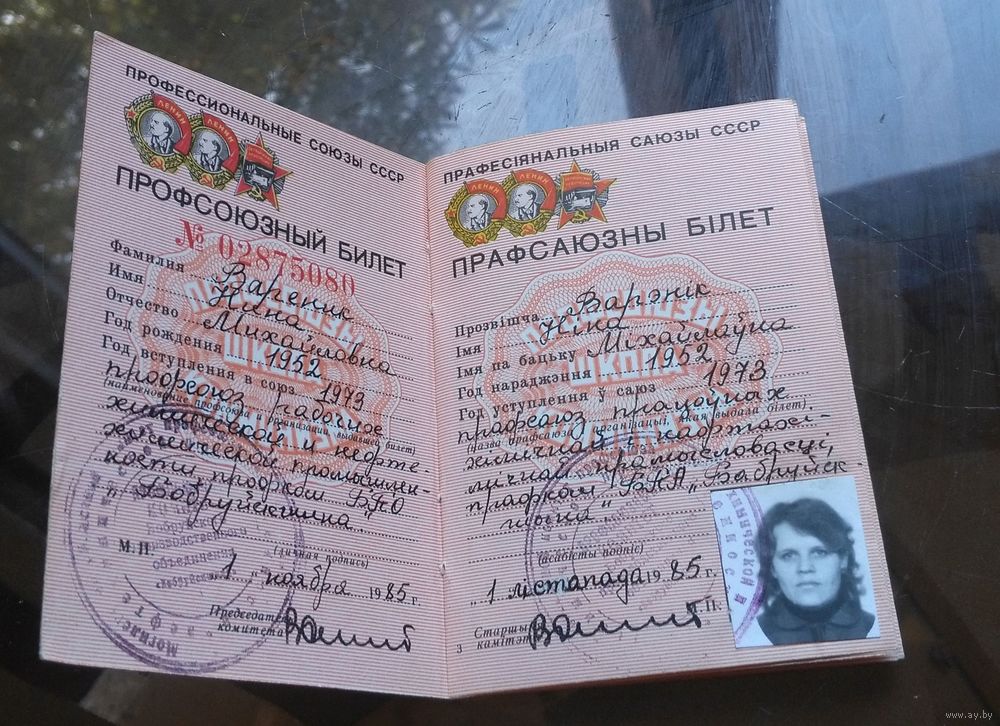 ПРОФЕССИОНАЛЬНЫЕ СОЮЗЫ СССР
ЛЕНИН
ЛЕНИН
ПРОФСОЮЗНЫЙ БИЛЕТ
№ 02875080
Фамилия Вареник
Имя Нина
Отчество Михайловна
Год рождения 1952
Год вступления в союз 1973
профсоюз рабочих
(наименование профсоюза и организации, выдавшей билет)
химической и нефте-
химической промышлен-
ности, профком БПО
"Бобруйскшина"
(личная подпись)
М.П.
"1" ноября 1985 г.
Председатель
комитета
ПРАФЕСІЯНАЛЬНЫЯ САЮЗЫ СССР
ЛЕНИН
ЛЕНИН
ПРАФСАЮЗНЫ БІЛЕТ
Прозвішча Варэнік
Імя Ніна
Імя па бацьку Міхайлаўна
Год нараджэння 1952
Год уступлення ў саюз 1973
прафсаюз працоўных
(назва прафсаюза і арганізацыі, якая выдала білет)
хімічнай і нафтахі-
мічнай прамысловасці,
прафком "Бабруйск-
шына"
(асабісты подпіс)
"1" лістапада 1985 г.
М.П.
Старшы
камітэта
3
www.ay.by